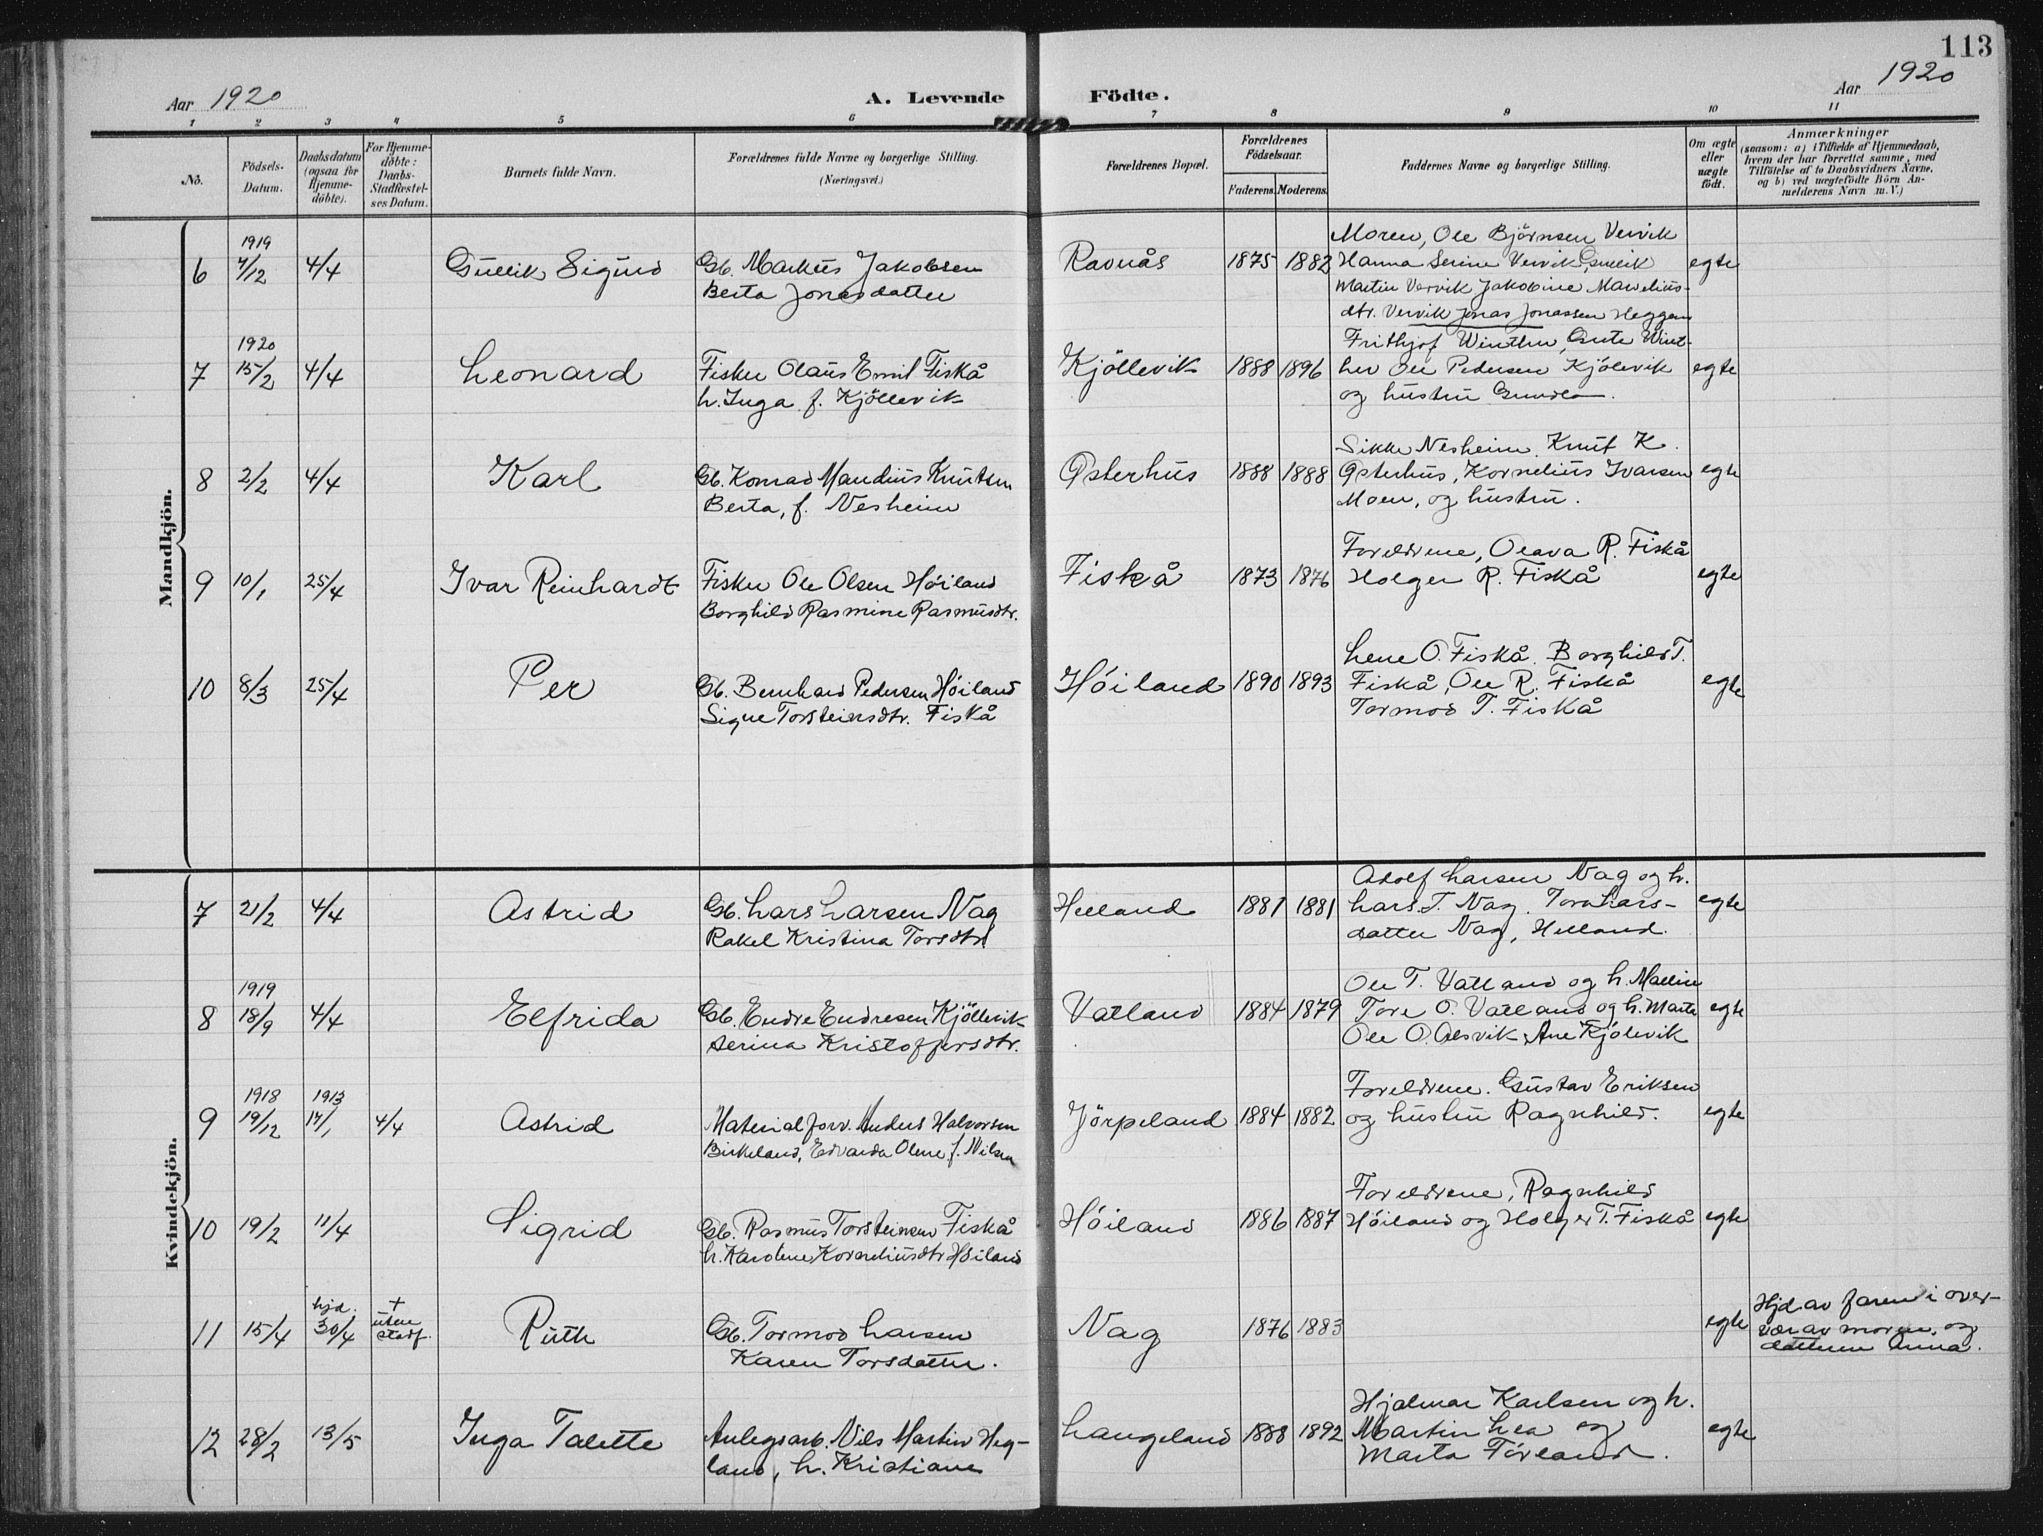 113
Aar 1920
A. Levende Födte.
Aar 1920
1 2 3 4 5 6 7 8 9 10 11
No.
Födsels-
Datum.
Daabsdatum
(ogsaa for
Hjemme-
döbte).
For Hjemme-
döbte:
Daabs-
Stadfæstel-
ses Datum.
Barnets fulde Navn.
Forældrenes fulde Navne og borgerlige Stilling.
(Næringsvei.)
Forældrenes Bopæl.
Forældrenes
Födselsaar.
Faderens. Moderens.
Faddernes Navne og borgerlige Stilling.
Om ægte
eller
uægte
födt.
Anmærkninger
(saasom: a) i Tilfælde af Hjemmedaab,
hvem der har forrettet samme, med
Tilföielse af to Daabsvidners Navne,
og b) ved uægtefödte Börn An-
melderens Navn m. V.)
Mandkjön.
6 1919 4/4 Gullik Sigurd Gb. Markus Jakobsen
Berta Jonasdatter
Ravnås 1875 1882 egte
Moren, Ole Björnsen Vervik
Hanna Serine Vervik, Gullik
Martin Vervik Jakobine
dtr. Vervik Jonas Jonassen Heggem
7 1920 15/2 4/4 Leonard Fisker Olaus Emil Fiskå
h. Inga f. Kjöllevik
Kjöllevik 1888 1896 egte
Frithjof Winther, Gute Wint-
her Ole Pedersen Kjölevik
og hustru Gunda.
8 2/2 4/4 Karl Gb. Konrad Mandius Knutsen
Berta, f. Nesheim
Østerhus 1888 1888 egte
Sikke Nesheim, Knut K.
Østerhus, Kornelius Ivarsen
Moen, og hustru.
9 10/1 25/4 Ivar Reinhardt Fisker Ole Olsen Höiland
Borghild Rasmine Rasmusdtr.
Fiskå 1873 1876 egte
Foreldrene, Olava R. Fiskå
Holger R. Fiskå
10 8/3 25/4 Per Gb. Bernhard Pedersen Höiland
Signe Torsteinsdtr. Fiskå
Höiland 1890 1893 egte
Lene O. Fiskå. Borghild T.
Fiskå, Ole R. Fiskå
Tormod T. Fiskå
Kvindekjön.
7 21/2 4/4 Astrid Gb. Lars Larsen Nag
Rakel Kristina Torsdtr.
Helland 1881 1881 egte
Adolf Larsen Nag og h.
Lars T. Nag. Tora Lars-
datter Nag, Helland.
8 1919 18/9 4/4 Elfrida Gb. Endre Endresen Kjöllevik
Serina Kristoffersdtr.
Vatland 1884 1879 egte
Ole T. Vatland og h. Malline
Tore O. Vatland og h. Marta
Ole O. Alsvik, Ane Kjölevik
9 1918 19/12 1913 4/4 Astrid Materialforv. Anders Halvorsen
Birkeland, Edvarda Olene f. Nilsen
Jörpeland 1884 1882 egte
Foreldrene. Gustav Eriksen
og hustru Ragnhild.
10 19/2 11/4 Sigrid Gb. Rasmus Torsteinsen Fiskå
h. Karolene Korneliusdtr Höiland
Höiland 1886 1887 egte
Foreldrene, Ragnhild
Höiland og Holger T. Fiskå
11 15/4 hjd. 30/4 + uten stadf. Ruth Gb. Tormod Larsen
Karen Torsdatter.
Nag 1876 1883 egte
Hjd. av faren i over-
vær av moren og
datteren Anna.
12 28/2 13/5 Inga Talette Anlegsarb. Nils Martin Heg-
land, h. Kristiane
Langeland 1888 1892 egte
Hjalmar Karlsen og h.
Martin Lea og
Marta Förland.